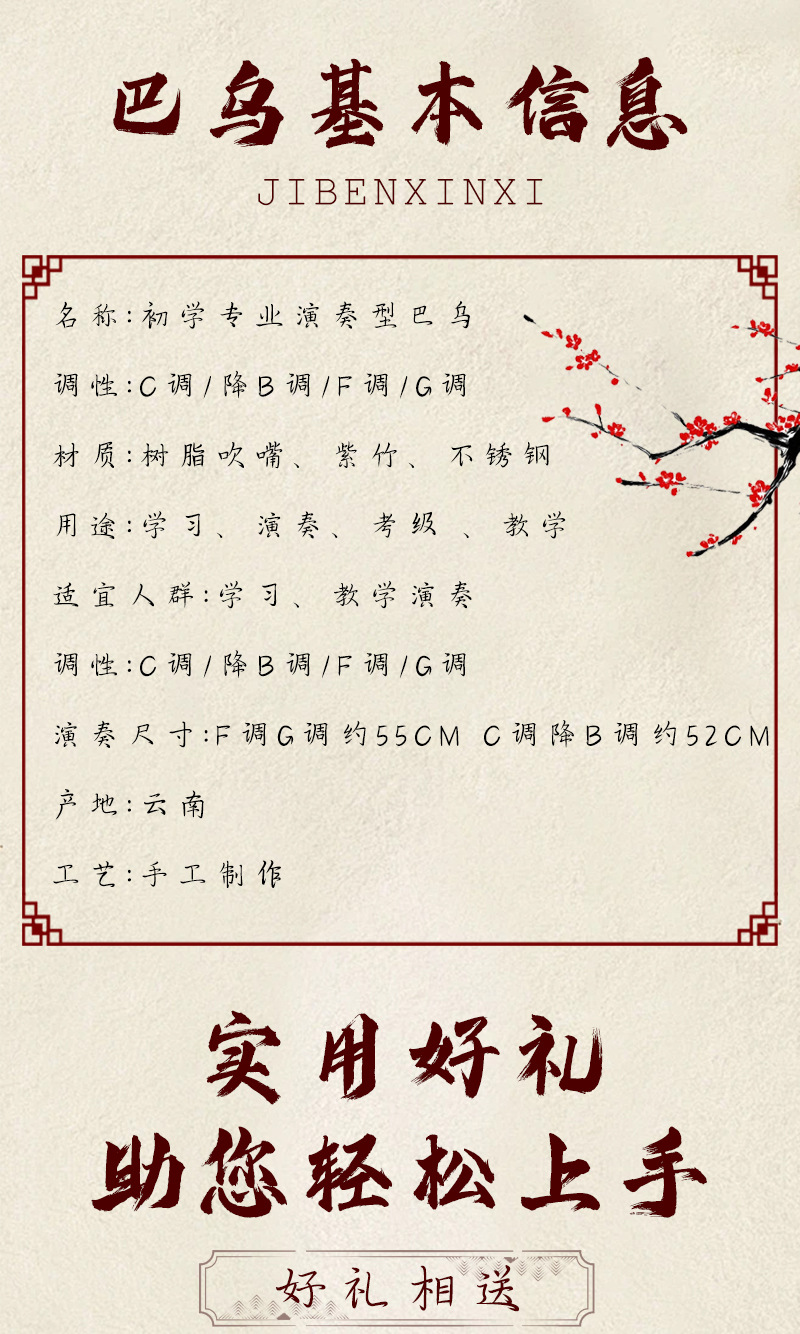 巴乌基本信息
JIBENXINXI
名称:初学专业演奏型巴乌
调性:C调/降B调/F调/G调
材质:树脂吹嘴、紫竹、不锈钢
用途:学习、演奏、考级、教学
适宜人群:学习、教学演奏
调性:C调/降B调/F调/G调
演奏尺寸:F调G调约55CM C调降B调约52CM
产地:云南
工艺:手工制作
实用好礼
助您轻松上手
好礼相送